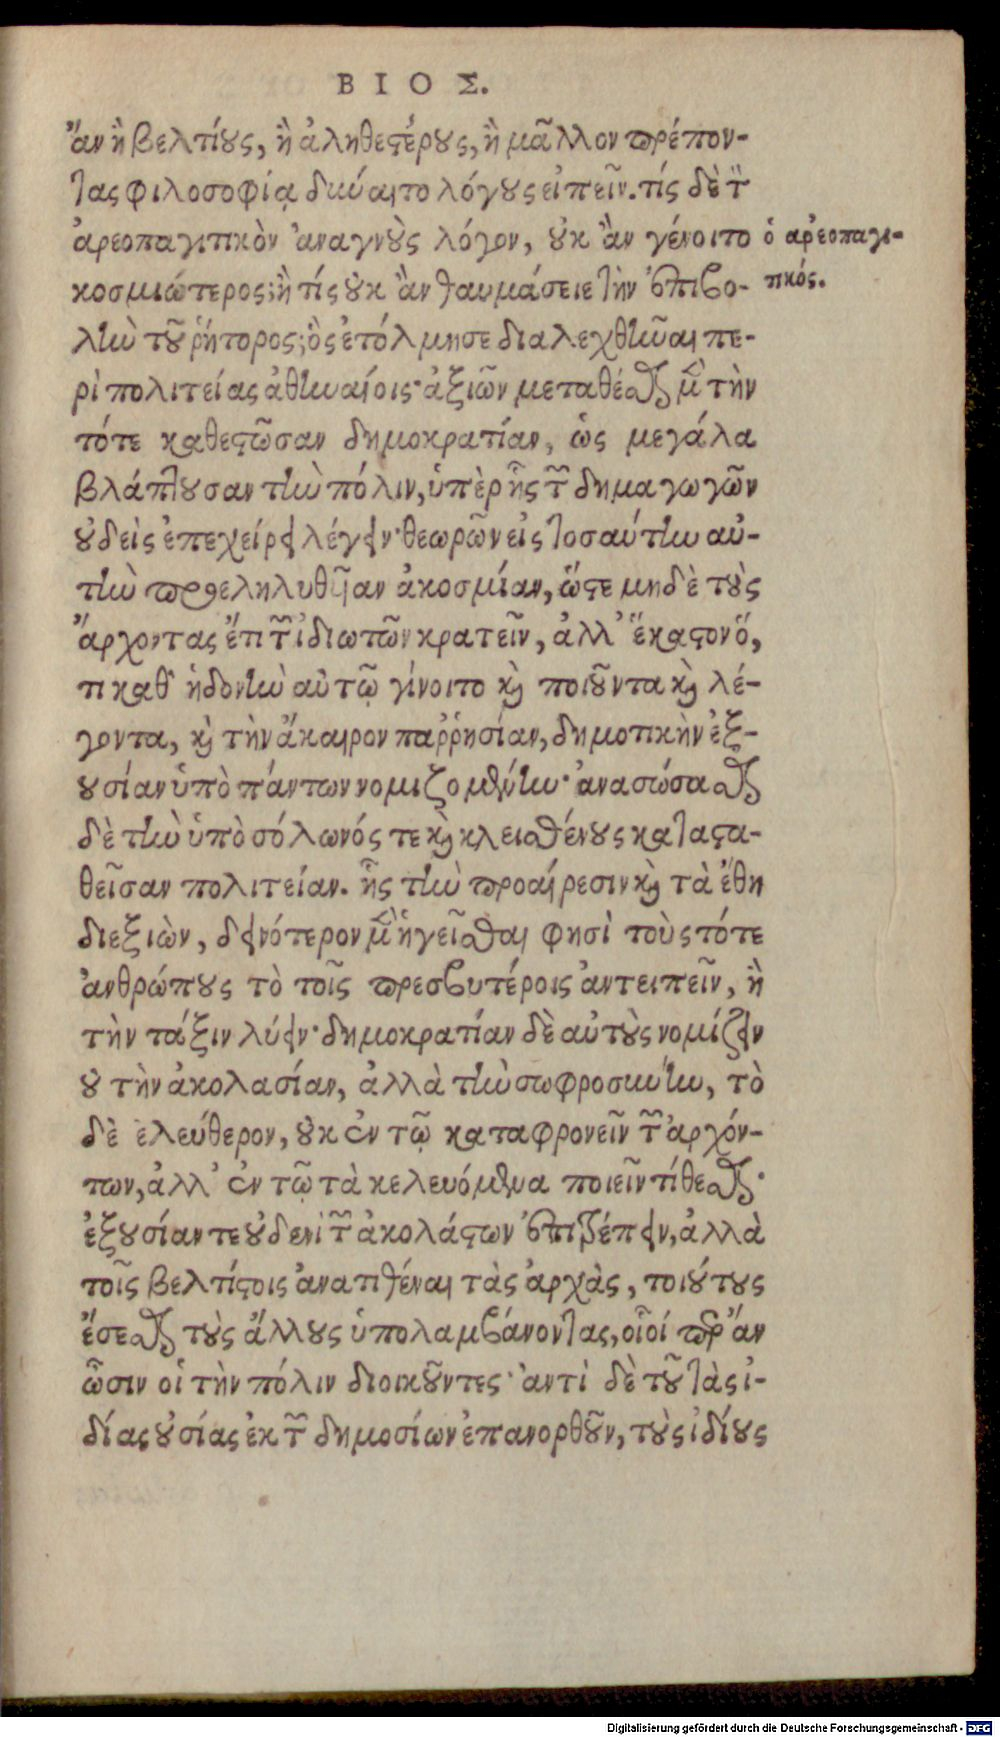 ΒΙΟΣ.
ἂν ἢ βελτίους, ἢ ἀληθεστέρους, ἢ μᾶλλον πρέπον-
τας φιλοσοφίᾳ δύναιτο λόγους εἰπεῖν. τίς δὲ τὸν
ἀρεοπαγιτικὸν ἀναγνοὺς λόγον, οὐκ ἂν γένοιτο
ὁ ἀρεοπαγι-
τικός.
κοσμιώτερος; ἢ τίς οὐκ ἂν θαυμάσειε τὴν ἐπιβο-
λὴν τοῦ ῥήτορος; ὃς ἐτόλμησε διαλεχθῆναι πε-
ρὶ πολιτείας ἀθηναίοις· ἀξιῶν μεταθέσθαι μὲν τὴν
τότε καθεστῶσαν δημοκρατίαν, ὡς μεγάλα
βλάπτουσαν τὴν πόλιν, ὑπὲρ ἧς τῶν δημαγωγῶν
οὐδεὶς ἐπεχείρει λέγειν· θεωρῶν εἰς τοσαύτην αὐ-
τὴν προεληλυθυῖαν ἀκοσμίαν, ὥστε μηδὲ τοὺς
ἄρχοντας ἔτι τῶν ἰδιωτῶν κρατεῖν, ἀλλ' ἕκαστον ὅ,
τι καθ' ἡδονὴν αὐτῷ γίνοιτο καὶ ποιοῦντα καὶ λέ-
γοντα, καὶ τὴν ἄκαιρον παῤῥησίαν, δημοτικὴν ἐξ-
ουσίαν ὑπὸ πάντων νομιζομένην· ἀνασώσασθαι
δὲ τὴν ὑπὸ σόλωνός τε καὶ κλεισθένους καταστα-
θεῖσαν πολιτείαν. ἧς τὴν προαίρεσιν καὶ τὰ ἔθη
διεξιὼν, δεινότερον μὲν ἡγεῖσθαι φησὶ τοὺς τότε
ἀνθρώπους τὸ τοῖς πρεσβυτέροις ἀντειπεῖν, ἢ
τὴν τάξιν λύειν· δημοκρατίαν δὲ αὐτοὺς νομίζειν
οὐ τὴν ἀκολασίαν, ἀλλὰ τὴν σωφροσύνην, τὸ
δὲ ἐλεύθερον, οὐκ ἐν τῷ καταφρονεῖν τῶν ἀρχόν-
των, ἀλλ' ἐν τῷ τὰ κελευόμενα ποιεῖν τίθεσθαι·
ἐξουσίαν τε οὐδενὶ τῶν ἀκολάστων ἐπιτρέπειν, ἀλλὰ
τοῖς βελτίστοις ἀνατιθέναι τὰς ἀρχὰς, τοιούτους
ἔσεσθαι τοὺς ἄλλους ὑπολαμβάνοντας, οἷοί περ ἂν
ὦσιν οἱ τὴν πόλιν διοικοῦντες· ἀντὶ δὲ τοῦ τὰς ἰ-
δίας οὐσίας ἐκ τῶν δημοσίων ἐπανορθοῦν, τοὺς ἰδίους
Digitalisierung gefördert durch die Deutsche Forschungsgemeinschaft - DFG